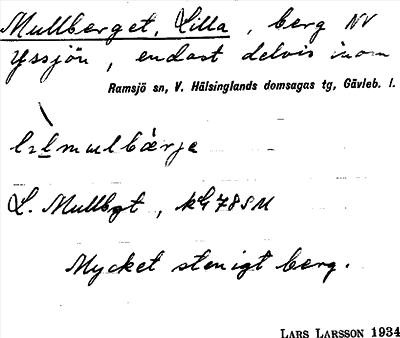 Mullberget, Lilla, berg NV
Yssjön, endast delvis inom
Ramsjö sn, V. Hälsinglands domsagas tg, Gävleb. l.
L. Mullbgt,
Mycket stenigt berg.
LARS LARSSON 1934